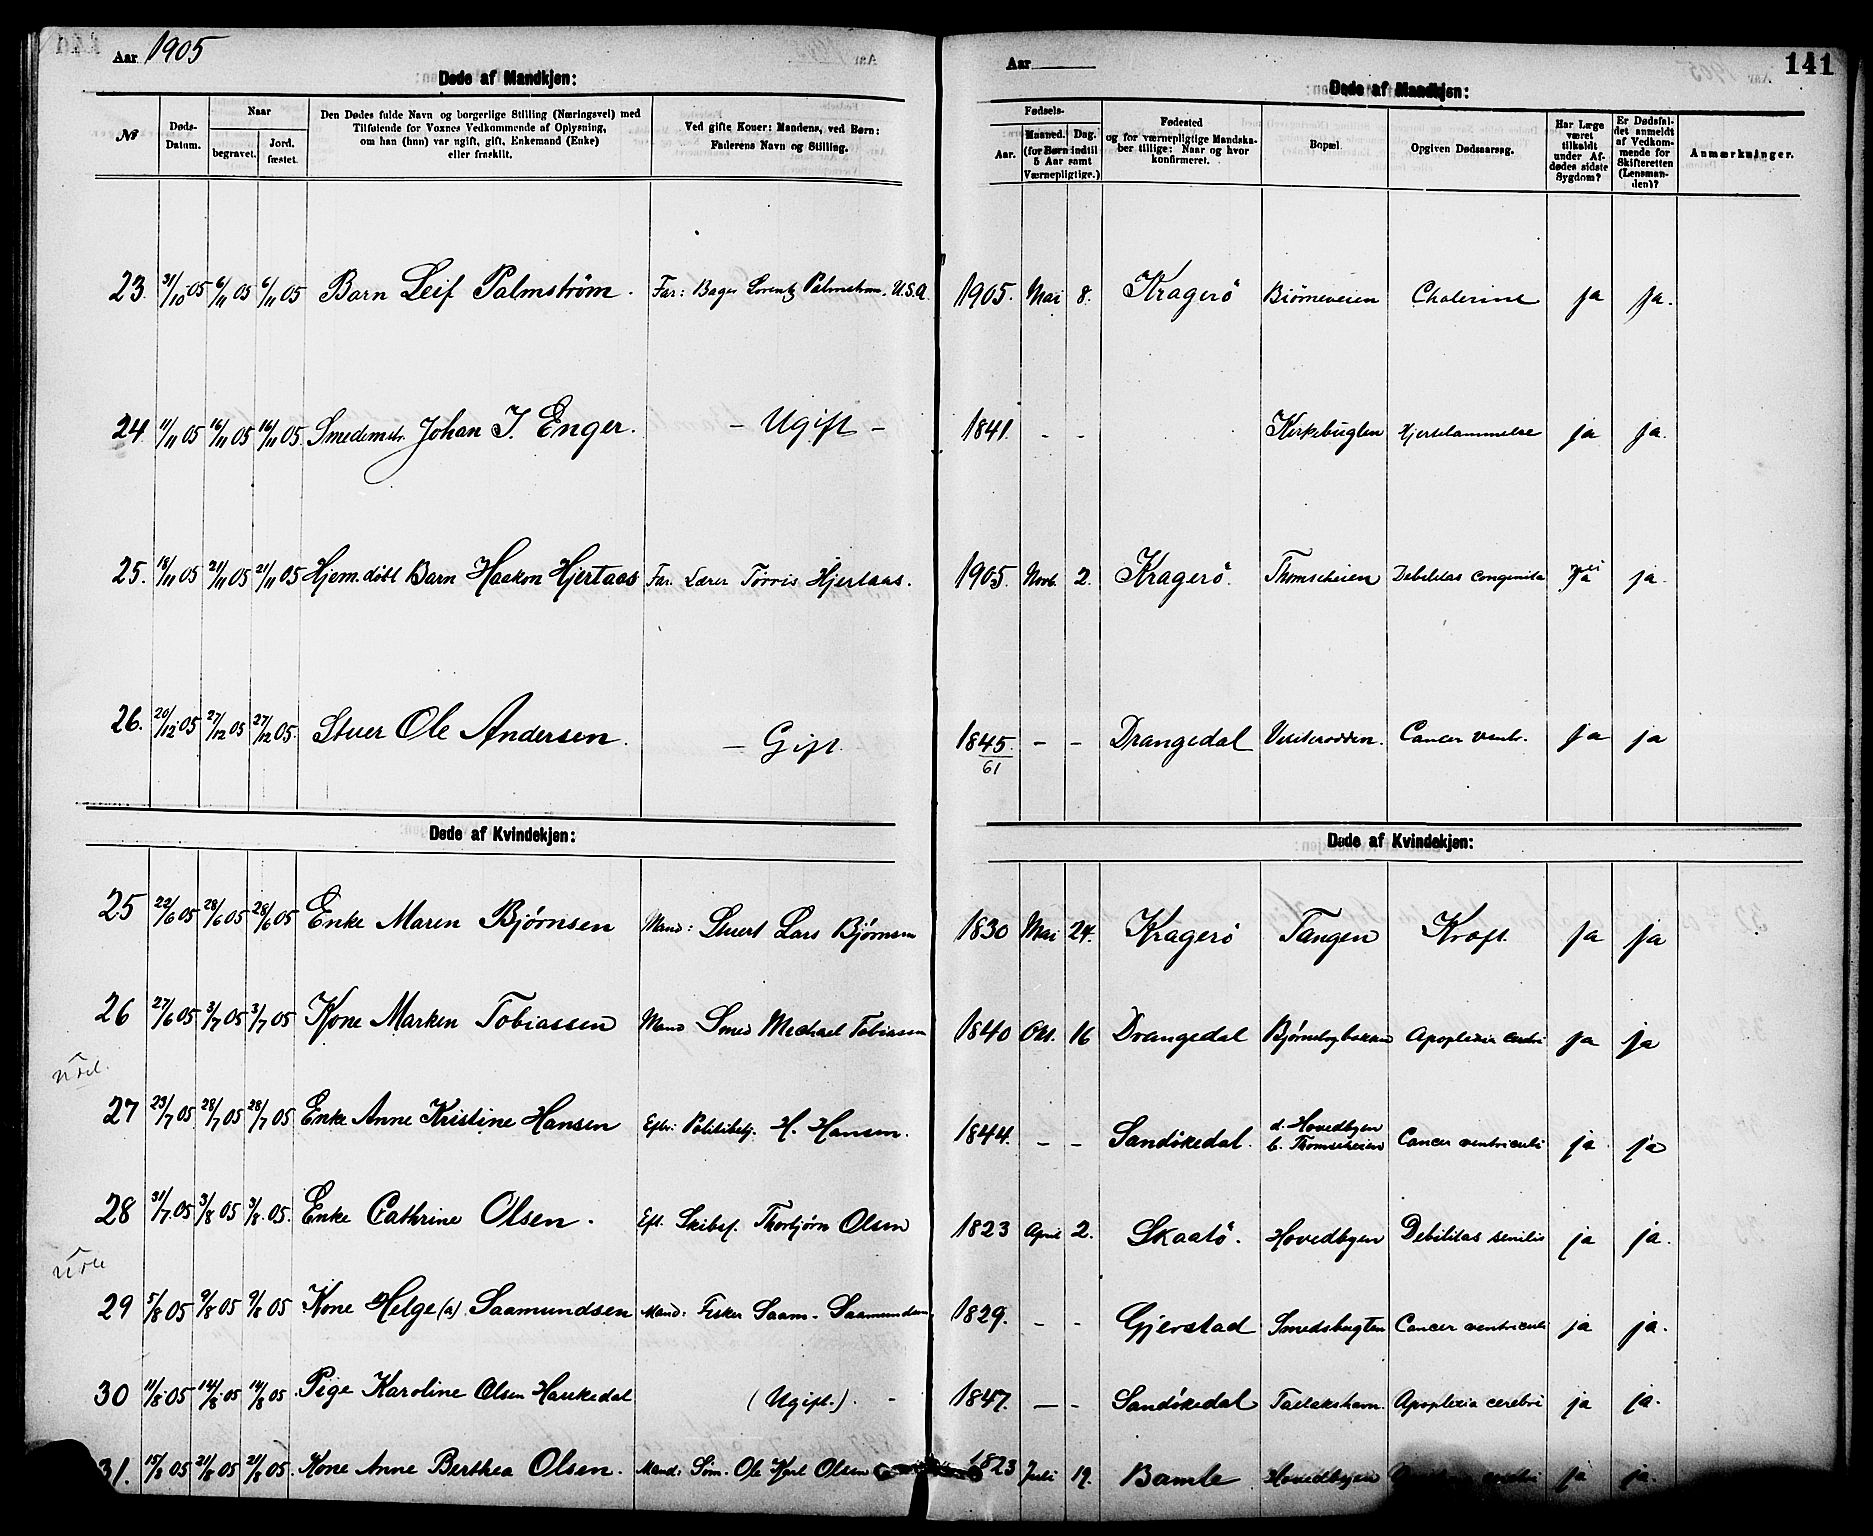 Aar 1905
Døde af Mandkjøn:
№ Døds-Datum. Naar begravet. Jord. fæstet. Den Dødes fulde Navn og borgerlige Stilling (Næringsvei) med Tilføiende for Voxnes Vedkommende af Oplysning, om han (hun) var ugift, gift, Enkemand (Enke) eller fraskilt. Ved gifte Koner: Mandens, ved Børn: Faderens Navn og Stilling.
Aar
141
Døde af Mandkjøn:
Fødsels- Aar. Maaned. Dag. (for Børn indtil 5 Aar samt Værnepligtige.) Fødested og for værnepligtige Mandskaber tillige: Naar og hvor konfirmeret. Bopæl. Opgiven Dødsaarsag. Har Læge været tilkaldt under Afdødes sidste Sygdom? Er Dødsfaldet anmeldt af Vedkommende for Skifteretten (Lensmanden)? Anmærkninger.
23. 31/10 05 6/11 05 6/11 05 Barn Leif Palmström. Far: Bager Lorentz Palmström. U.S.A. 1905. Mai 8. Kragerö Biörneveien Cholerine ja ja.
24. 11/11 05 16/11 05 16/11 05. Smedemstr. Johan I. Enger. - Ugift - 1841. - - Kirkebugten Hjertelammelse ja ja.
25. 18/11 05 21/11 05 21/11 05 Hjem.döbt Barn Haakon Hjertaas Far. Lærer Torvis Hjertaas. 1905. Novb. 2. Kragerö. Thomseheien Debilitas congenita ja ja.
26. 20/12 05 27/12 05 27/12 05. Stuer Ole Andersen. - Gift. 1845. 61 - - Drangedal Cancer ventr. ja ja
Døde af Kvindekjøn:
Døde af Kvindekjøn:
25 22/6 05 28/6 05 28/6 05 Enke Maren Bjørnsen Mand: Stuert Lars Bjørnsen 1830 Mai 24. Kragerö Tangen Kræft ja ja
26 27/6 05 3/7 05 3/7 05 Kone Marken Tobiassen Mand Smed Michael Tobiassen 1840 Okt. 16 Drangedal Bjørnebogbakken Apoplexia cerebri ja ja
27 23/7 05 28/7 05 28/7 05 Enke Anne Kristine Hansen Eftr: Politibetj. H. Hansen. 1844. - - Sandökedal. d. Hovedbyen b. Thomseheien Cancer ventriculi ja ja
28 31/7 05 3/8 05 3/8 05. Enke Cathrine Olsen. Eft. Skibsf. Thorbjörn Olsen 1823 April 2. Skaatö. Hovedbyen Debilitas senilis ja ja.
29 5/8 05 9/8 05 9/8 05 Kone Helge (a) Saamundsen Mand: Fisker Saam. Saamundsen 1829. - - Gjerstad Smedsbugten Cancer ventriculi ja ja.
30 11/8 05 14/8 05 14/8 05. Pige Karoline Olsen Haukedal (Ugift.). - 1847. - - Sandökedal Taelakshavn. Apoplexia cerebri ja ja.
31. 15/8 05 21/8 05 21/8 05 Kone Anne Berthea Olsen. Mand: Söm. Ole Kjel Olsen 1823 Juli 19. Bamle Hovedbyen ja ja.